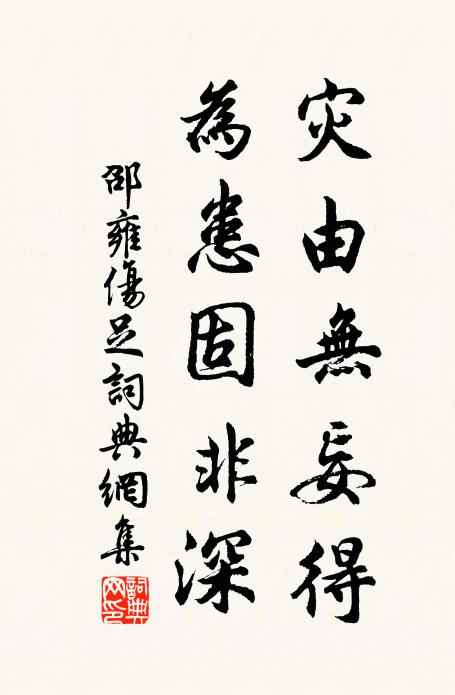 灾由無妄得
為患固非深
邵雍傷足詞典網集
詞典網印